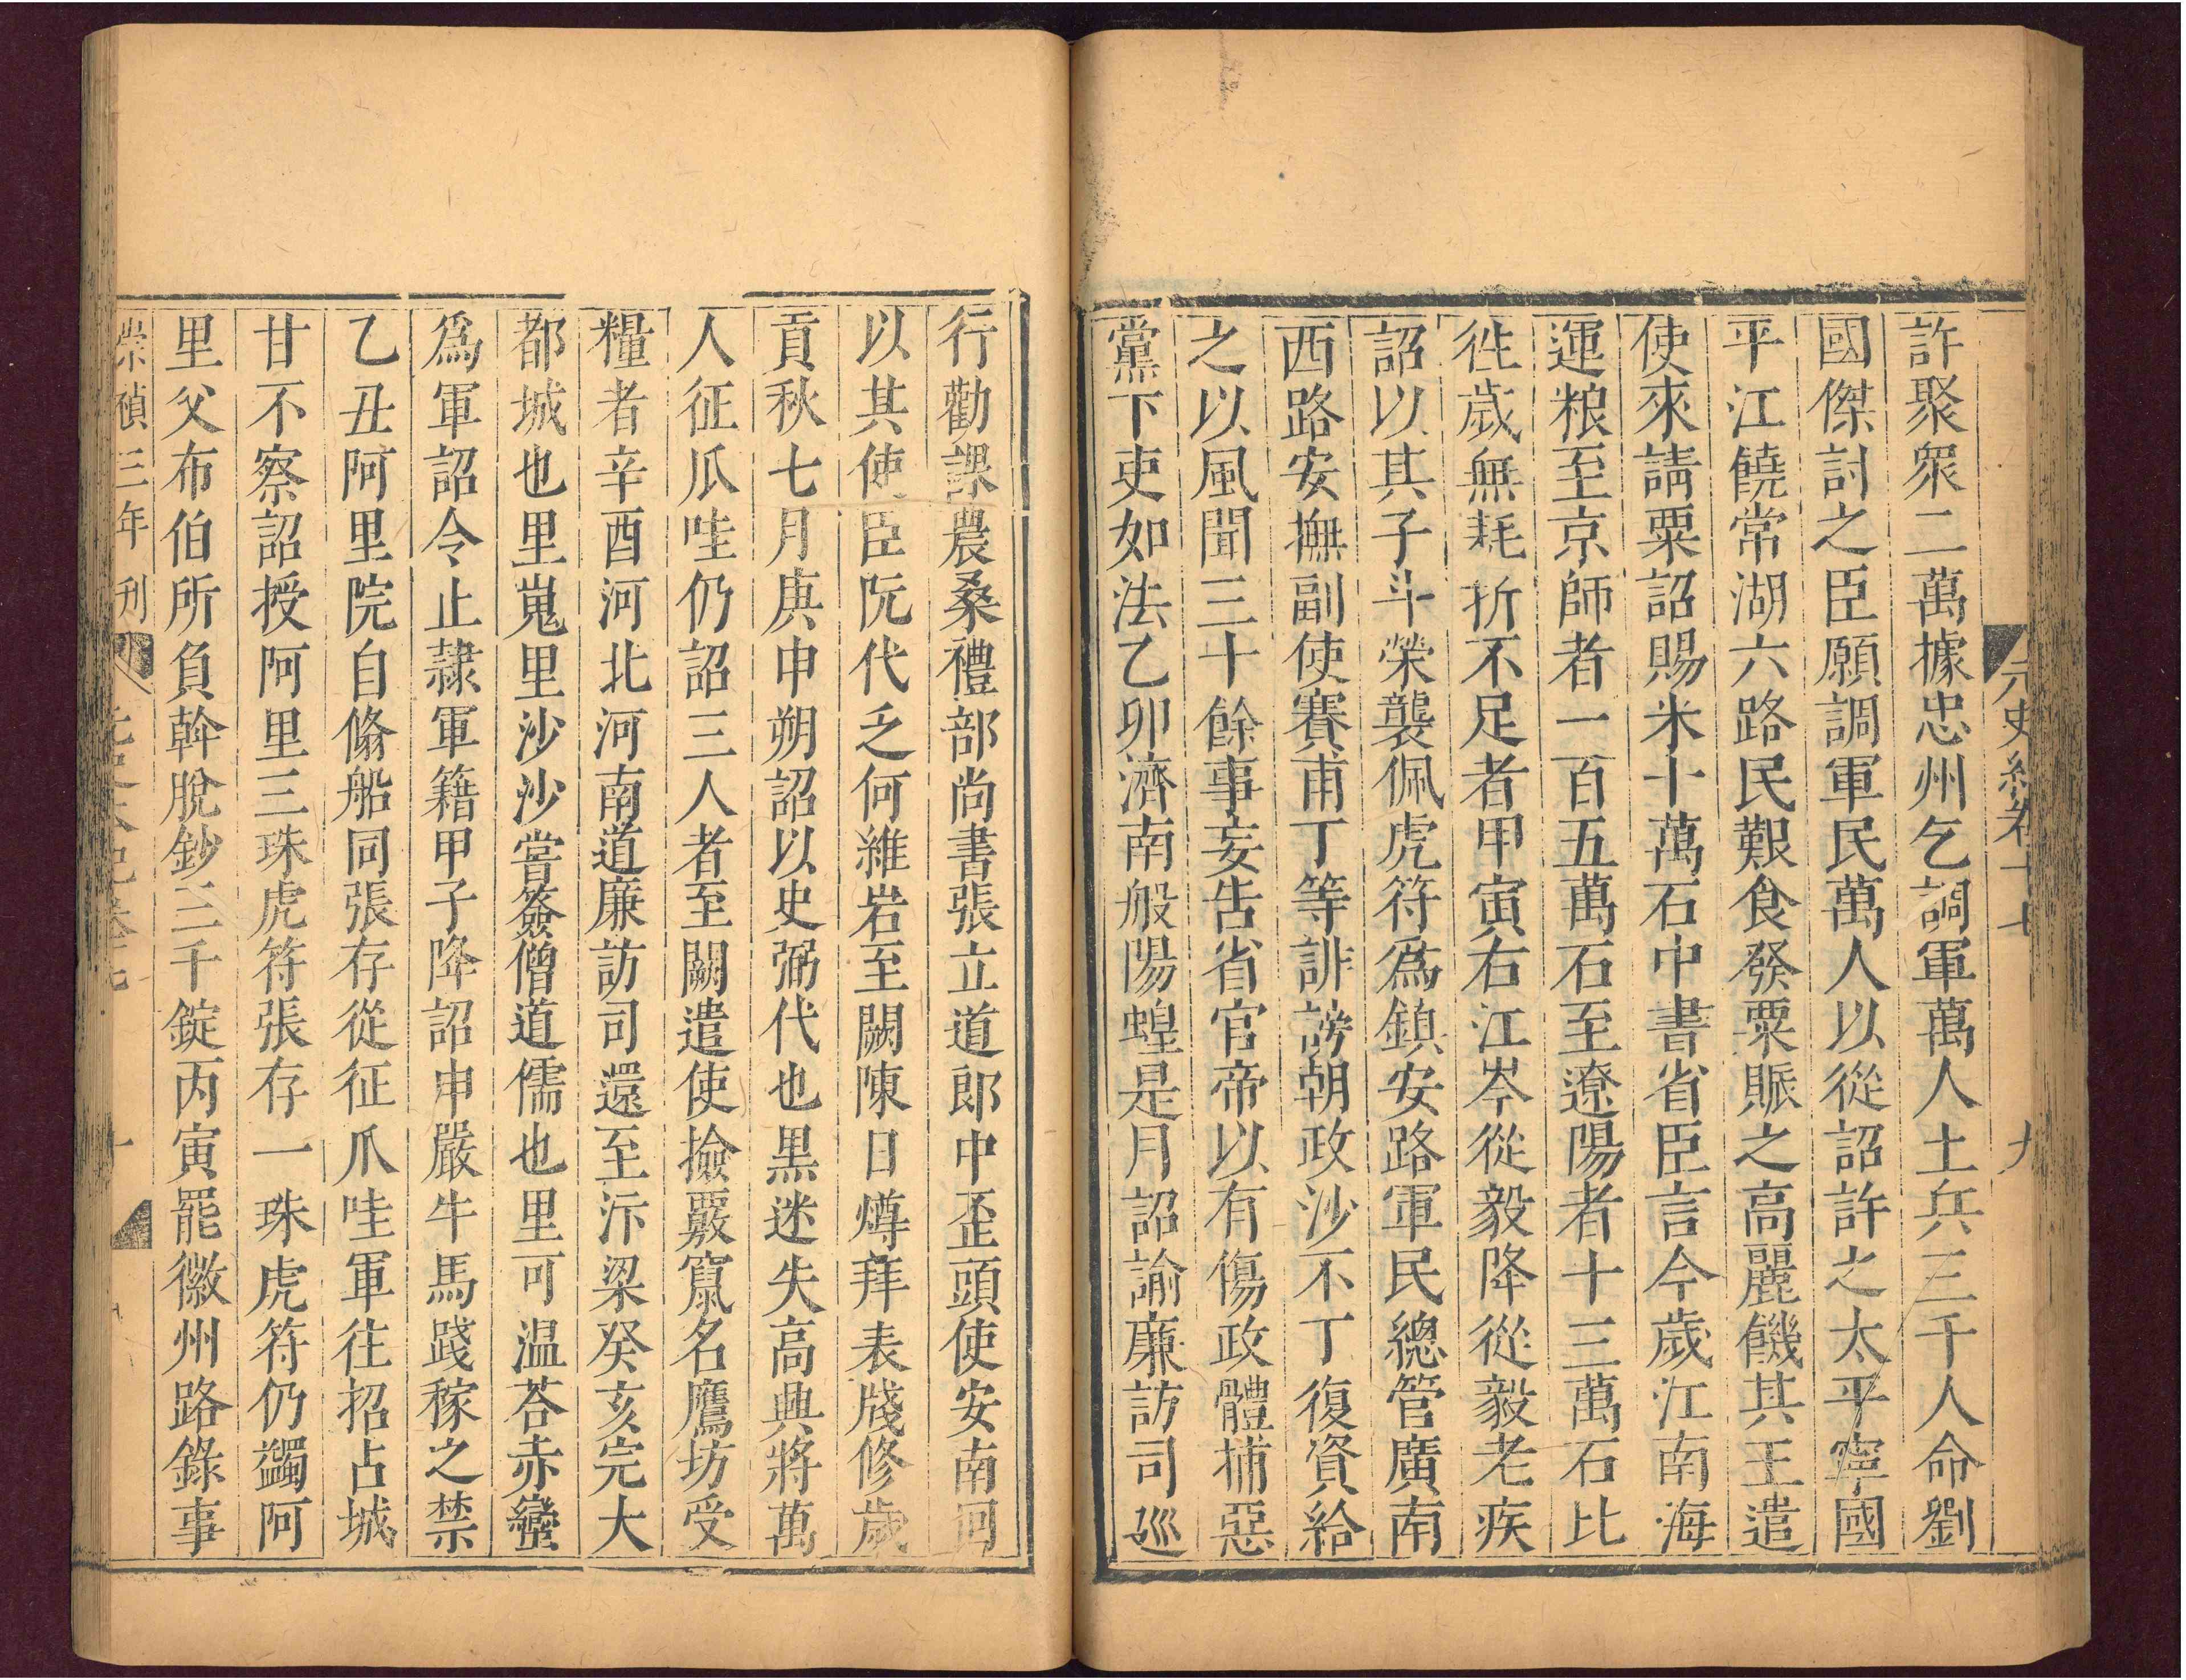 元史紀卷十七 九
許聚衆二萬據忠州乞調軍萬人土兵三千人命劉
國傑討之臣願調軍民萬人以從詔許之太平寧國
平江饒常湖六路民艱食發粟賑之高麗饑其王遣
使來請粟詔賜米十萬石中書省臣言今歲江南海
運粮至京師者一百五萬石至遼陽者十三萬石比
徃歲無耗折不足者甲寅右江岑從毅降從毅老疾
詔以其子斗榮襲佩虎符爲鎮安路軍民總管廣南
西路安撫副使賽甫丁等誹謗朝政沙不丁復資給
之以風聞三十餘事妄告省官帝以有傷政體捕惡
黨下吏如法乙卯濟南般陽蝗是月詔諭廉訪司巡
行勸課農桑禮部尚書張立道郎中歪頭使安南回
以其使臣阮代乏何維岩至闕陳日燇拜表牋修歲
貢秋七月庚申朔詔以史弼代也黒迷失高興將萬
人征瓜哇仍詔三人者至闕遣使撿覈竄名鷹坊受
糧者辛酉河北河南道廉訪司還至汴梁癸亥完大
都城也里嵬里沙沙嘗簽僧道儒也里可温荅赤蠻
爲軍詔令止隷軍籍甲子降詔申嚴牛馬踐稼之禁
乙丑阿里院自脩船同張存從征爪哇軍往招占城
甘不察詔授阿里三珠虎符張存一珠虎符仍蠲阿
里父布伯所負斡脫鈔三千錠丙寅罷徽州路錄事
崇禎三年刊 十